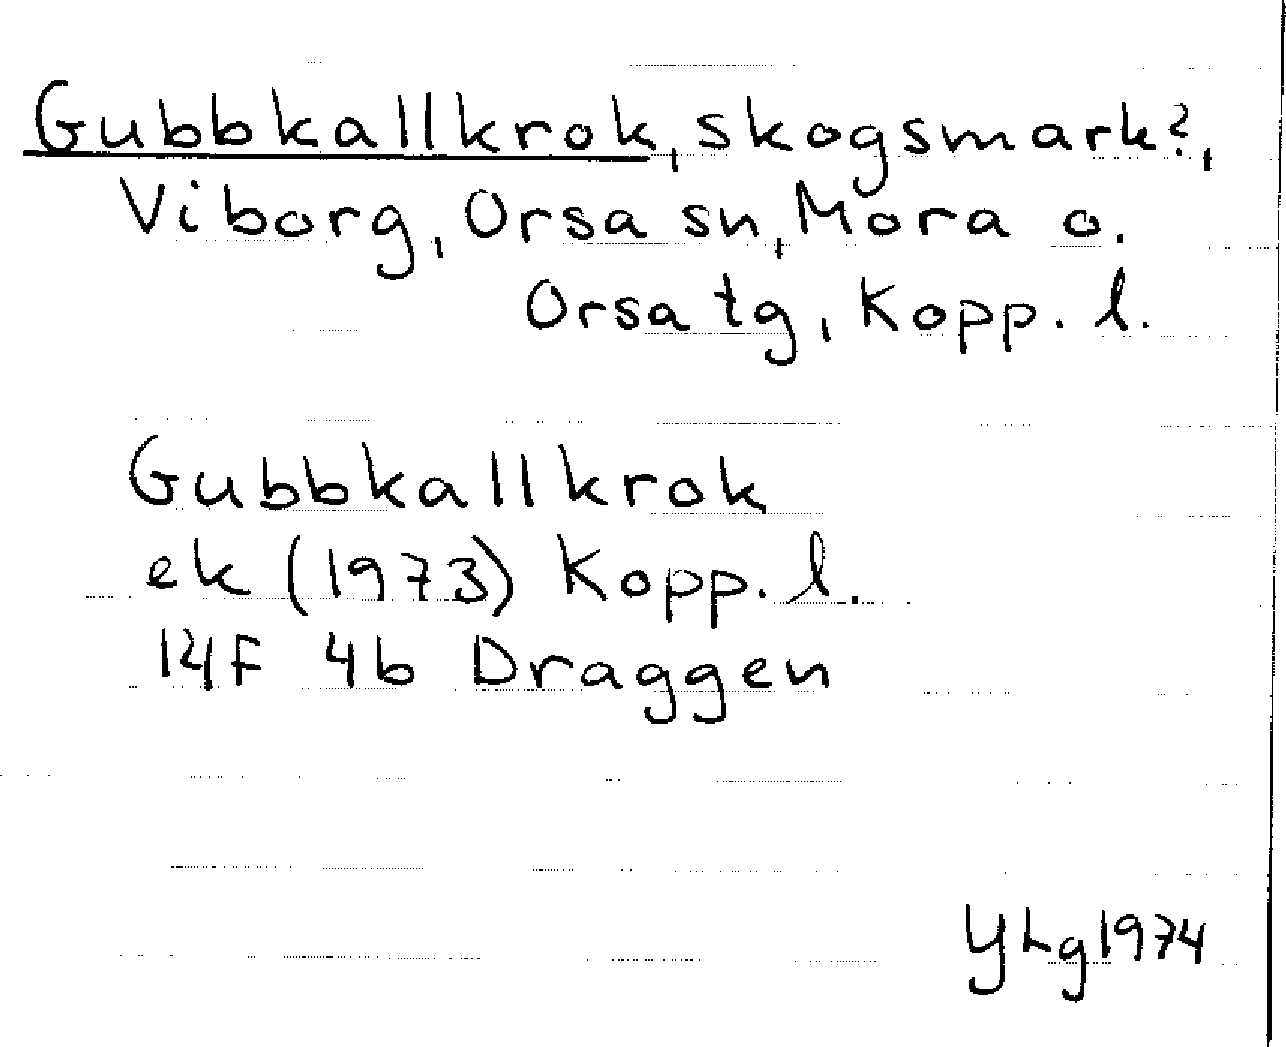 Gubbkallkrok, skogsmark?,
Viborg, Orsa sn, Mora o.
Orsa tg, Kopp. l.
Gubbkallkrok
ek (1973) Kopp. l.
14F 4b Draggen
YLg 1974